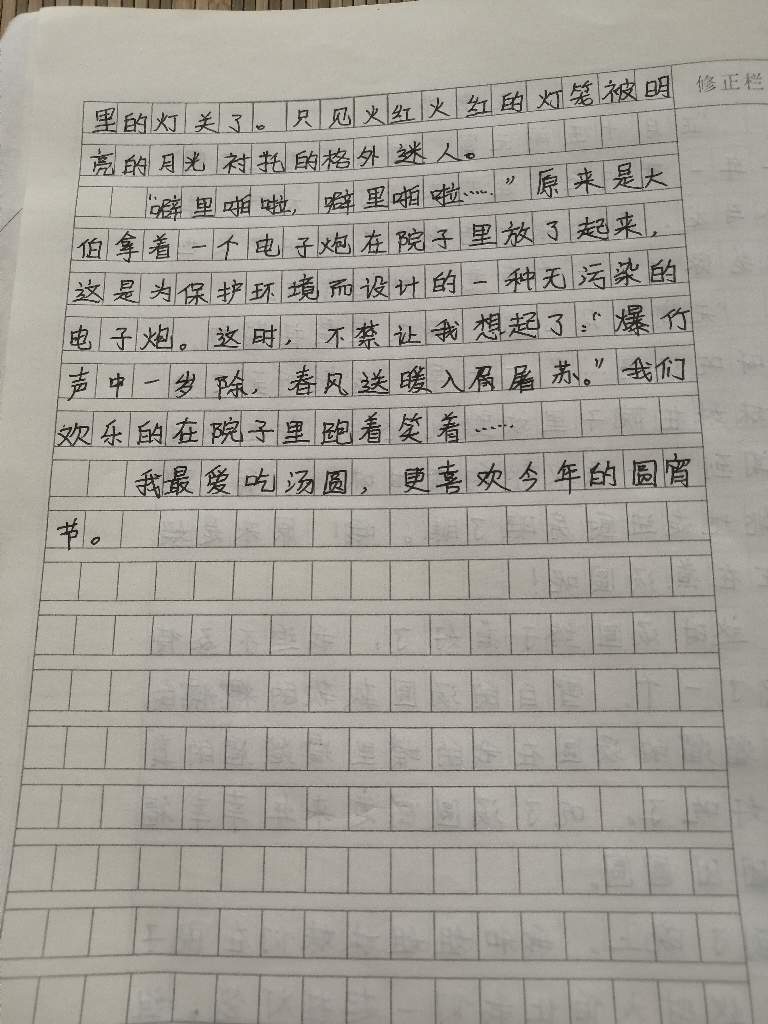 修正栏
里的灯关了。只见火红火红的灯笼被明
亮的月光衬托的格外迷人。
“噼里啪啦，噼里啪啦……”原来是大
伯拿着一个电子炮在院子里放了起来，
这是为保护环境而设计的一种无污染的
电子炮。这时，不禁让我想起了：“爆竹
声中一岁除，春风送暖入屠苏。”我们
欢乐的在院子里跑着笑着……
我最爱吃汤圆，更喜欢今年的圆宵
节。